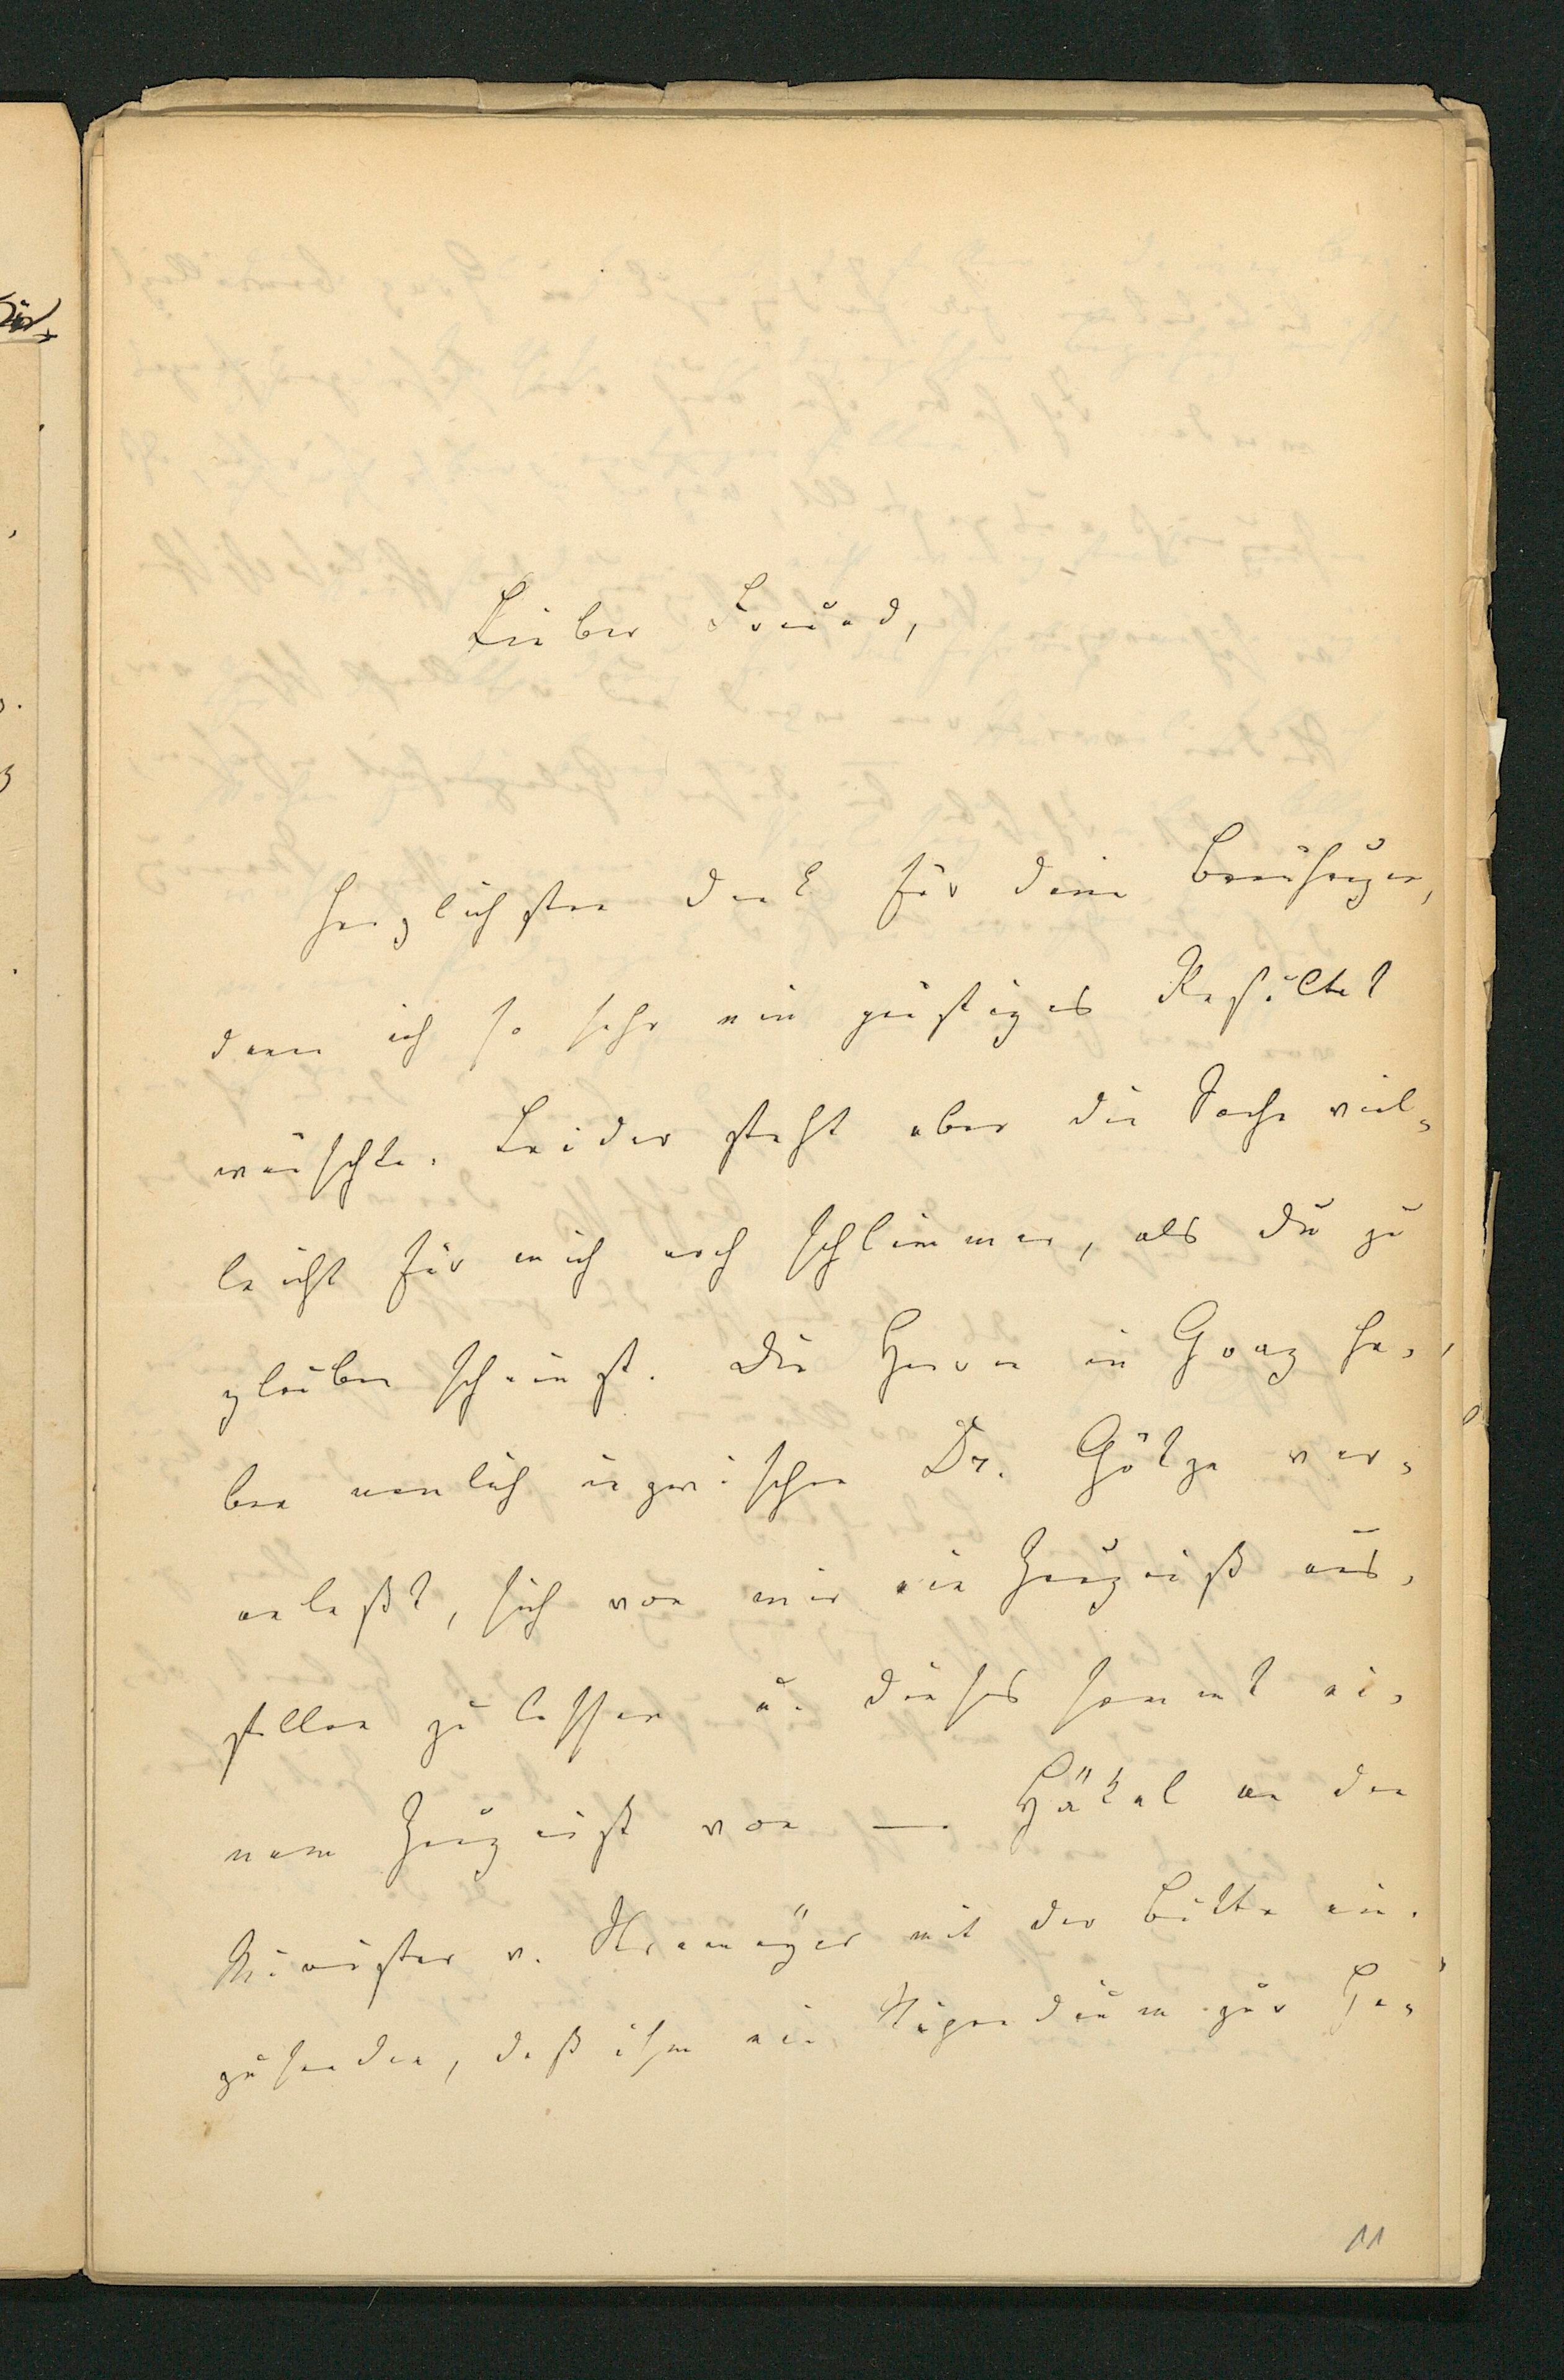 Lieber Freund,
herzlichsten Dank für deine Bemühungen,
denen ich so sehr ein günstiges Resultat
wünschte. Leider steht aber die Sache viel-
leicht für mich noch schlimmer, als du zu
glauben scheinst. Die Herren in Graz ha-
ben nemlich inzwischen Dr. Götze ver-
anlaßt, sich von mir ein Zeugniß aus-
stellen zu lassen u. dieses sammt ei-
nem Zeugniß von Häkel an den
Minister v. Stremäyer mit der Bitte ein-
zusenden, daß ihm ein Stipendium zur Ha-
11